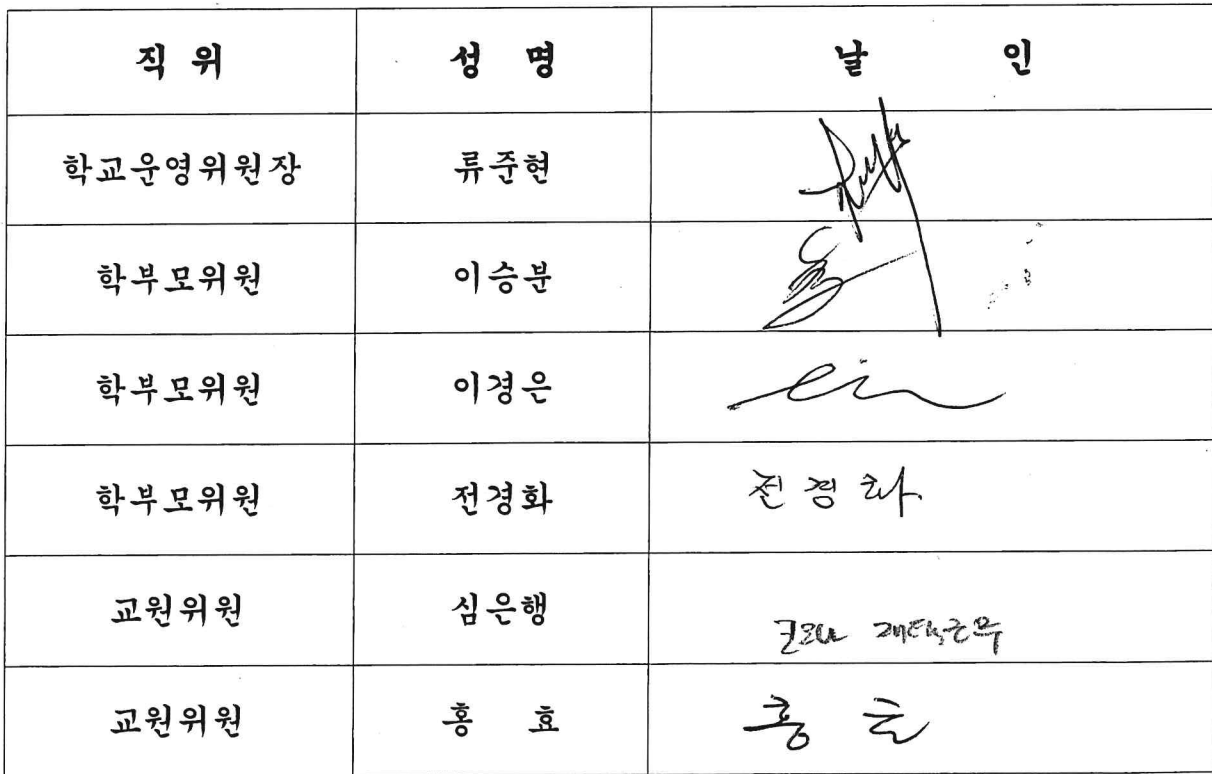 직 위 성 명 날 인
학교운영위원장 류준현
학부모위원 이승분
학부모위원 이경은
학부모위원 전경화 전경화
교원위원 심은행 코로나 재택근무
교원위원 홍 효 홍 효